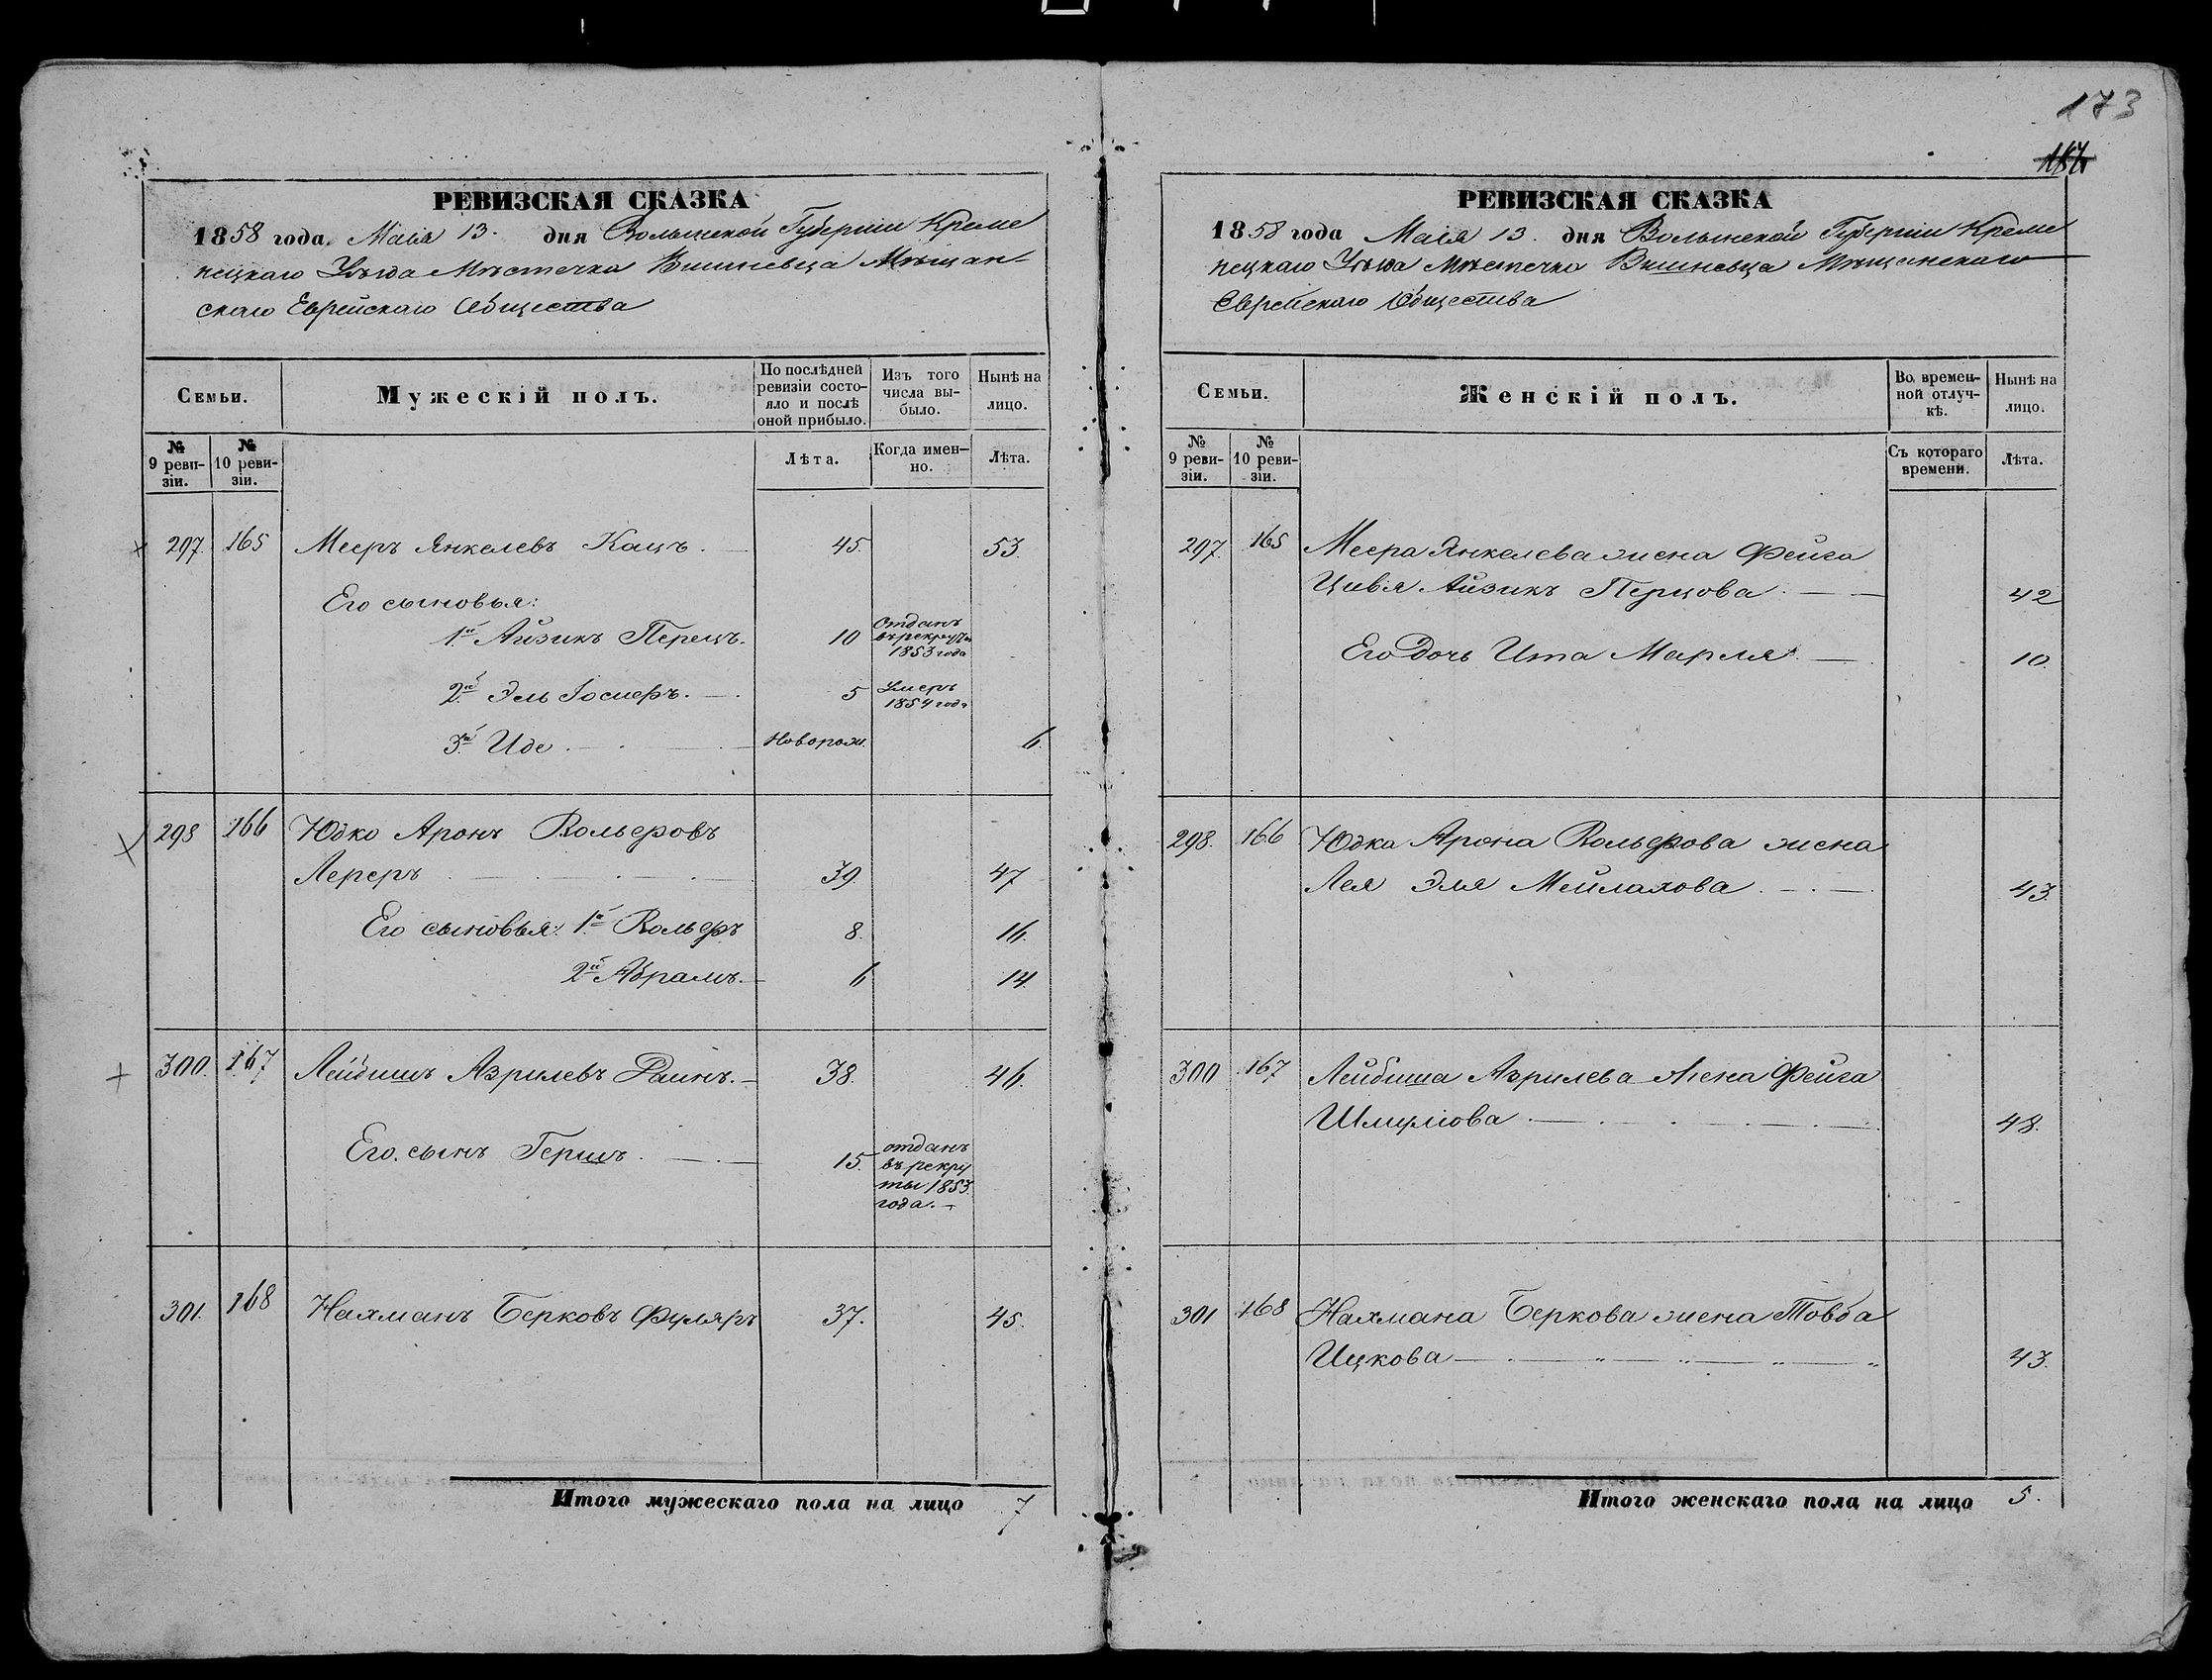 173
РЕВИЗСКАЯ СКАЗКА
1858 года. Маія 13. дня Волынской Губерніи Креме
нецкаго Уѣзда Мѣстечка Вишневца Мѣщан-
скаго Еврейскаго Общества
Семьи.
Мужескій полъ.
По послѣдней
ревизіи состо-
яло и послѣ
оной прибыло.
Изъ того
числа вы-
было.
Нынѣ на
лицо.
№
9 реви-
зіи.
№
10 реви-
зіи.
Лѣта.
Когда имен-
но.
Лѣта.
297. 165 Мееръ Янкелевъ Кацъ. 45. 53.
Его сыновья:
1й Айзикъ Перецъ. 10 Отданъ
въ рекруты
1853 года
2й Эль 5 Умеръ
1854 года
3й Иде Новорож. 6.
298 166 Юдко Аронъ Вольфовъ
Лереръ 39. 47
Его сыновья: 1й Вольфъ 8. 16.
2й Абрамъ. 6 14.
300. 167 Лейбишъ Азрилевъ 38. 46.
Его сынъ Гершъ 15. отданъ
въ рекру
ты 1853
года.
301. 168 Нахманъ Берковъ Фуляръ 37. 45.
Итого мужескаго пола на лицо 7
РЕВИЗСКАЯ СКАЗКА
1858 года Маія 13. дня Волынской Губерніи Креме
нецкаго Уѣзда Мѣстечка Вишневца Мѣщанскаго
Еврейскаго Общества
Семьи.
Женскій полъ.
Во времен-
ной отлуч-
кѣ.
Нынѣ на
лицо.
№
9 реви-
зіи.
№
10 реви-
зіи.
Съ котораго
времени.
Лѣта.
297. 165 Меера Янкелева жена Фейга
Цивя Айзикъ Перцова 42
Его дочь Ита Марля 10.
298. 166 Юдка Арона Вольфова жена
Лея Эля Мейлахова 43.
300 167 Лейбиша Азрилева жена Фейга
Шмулова 48.
301 168 Нахмана Беркова жена Товба
Ицкова 43.
Итого женскаго пола на лицо 5.